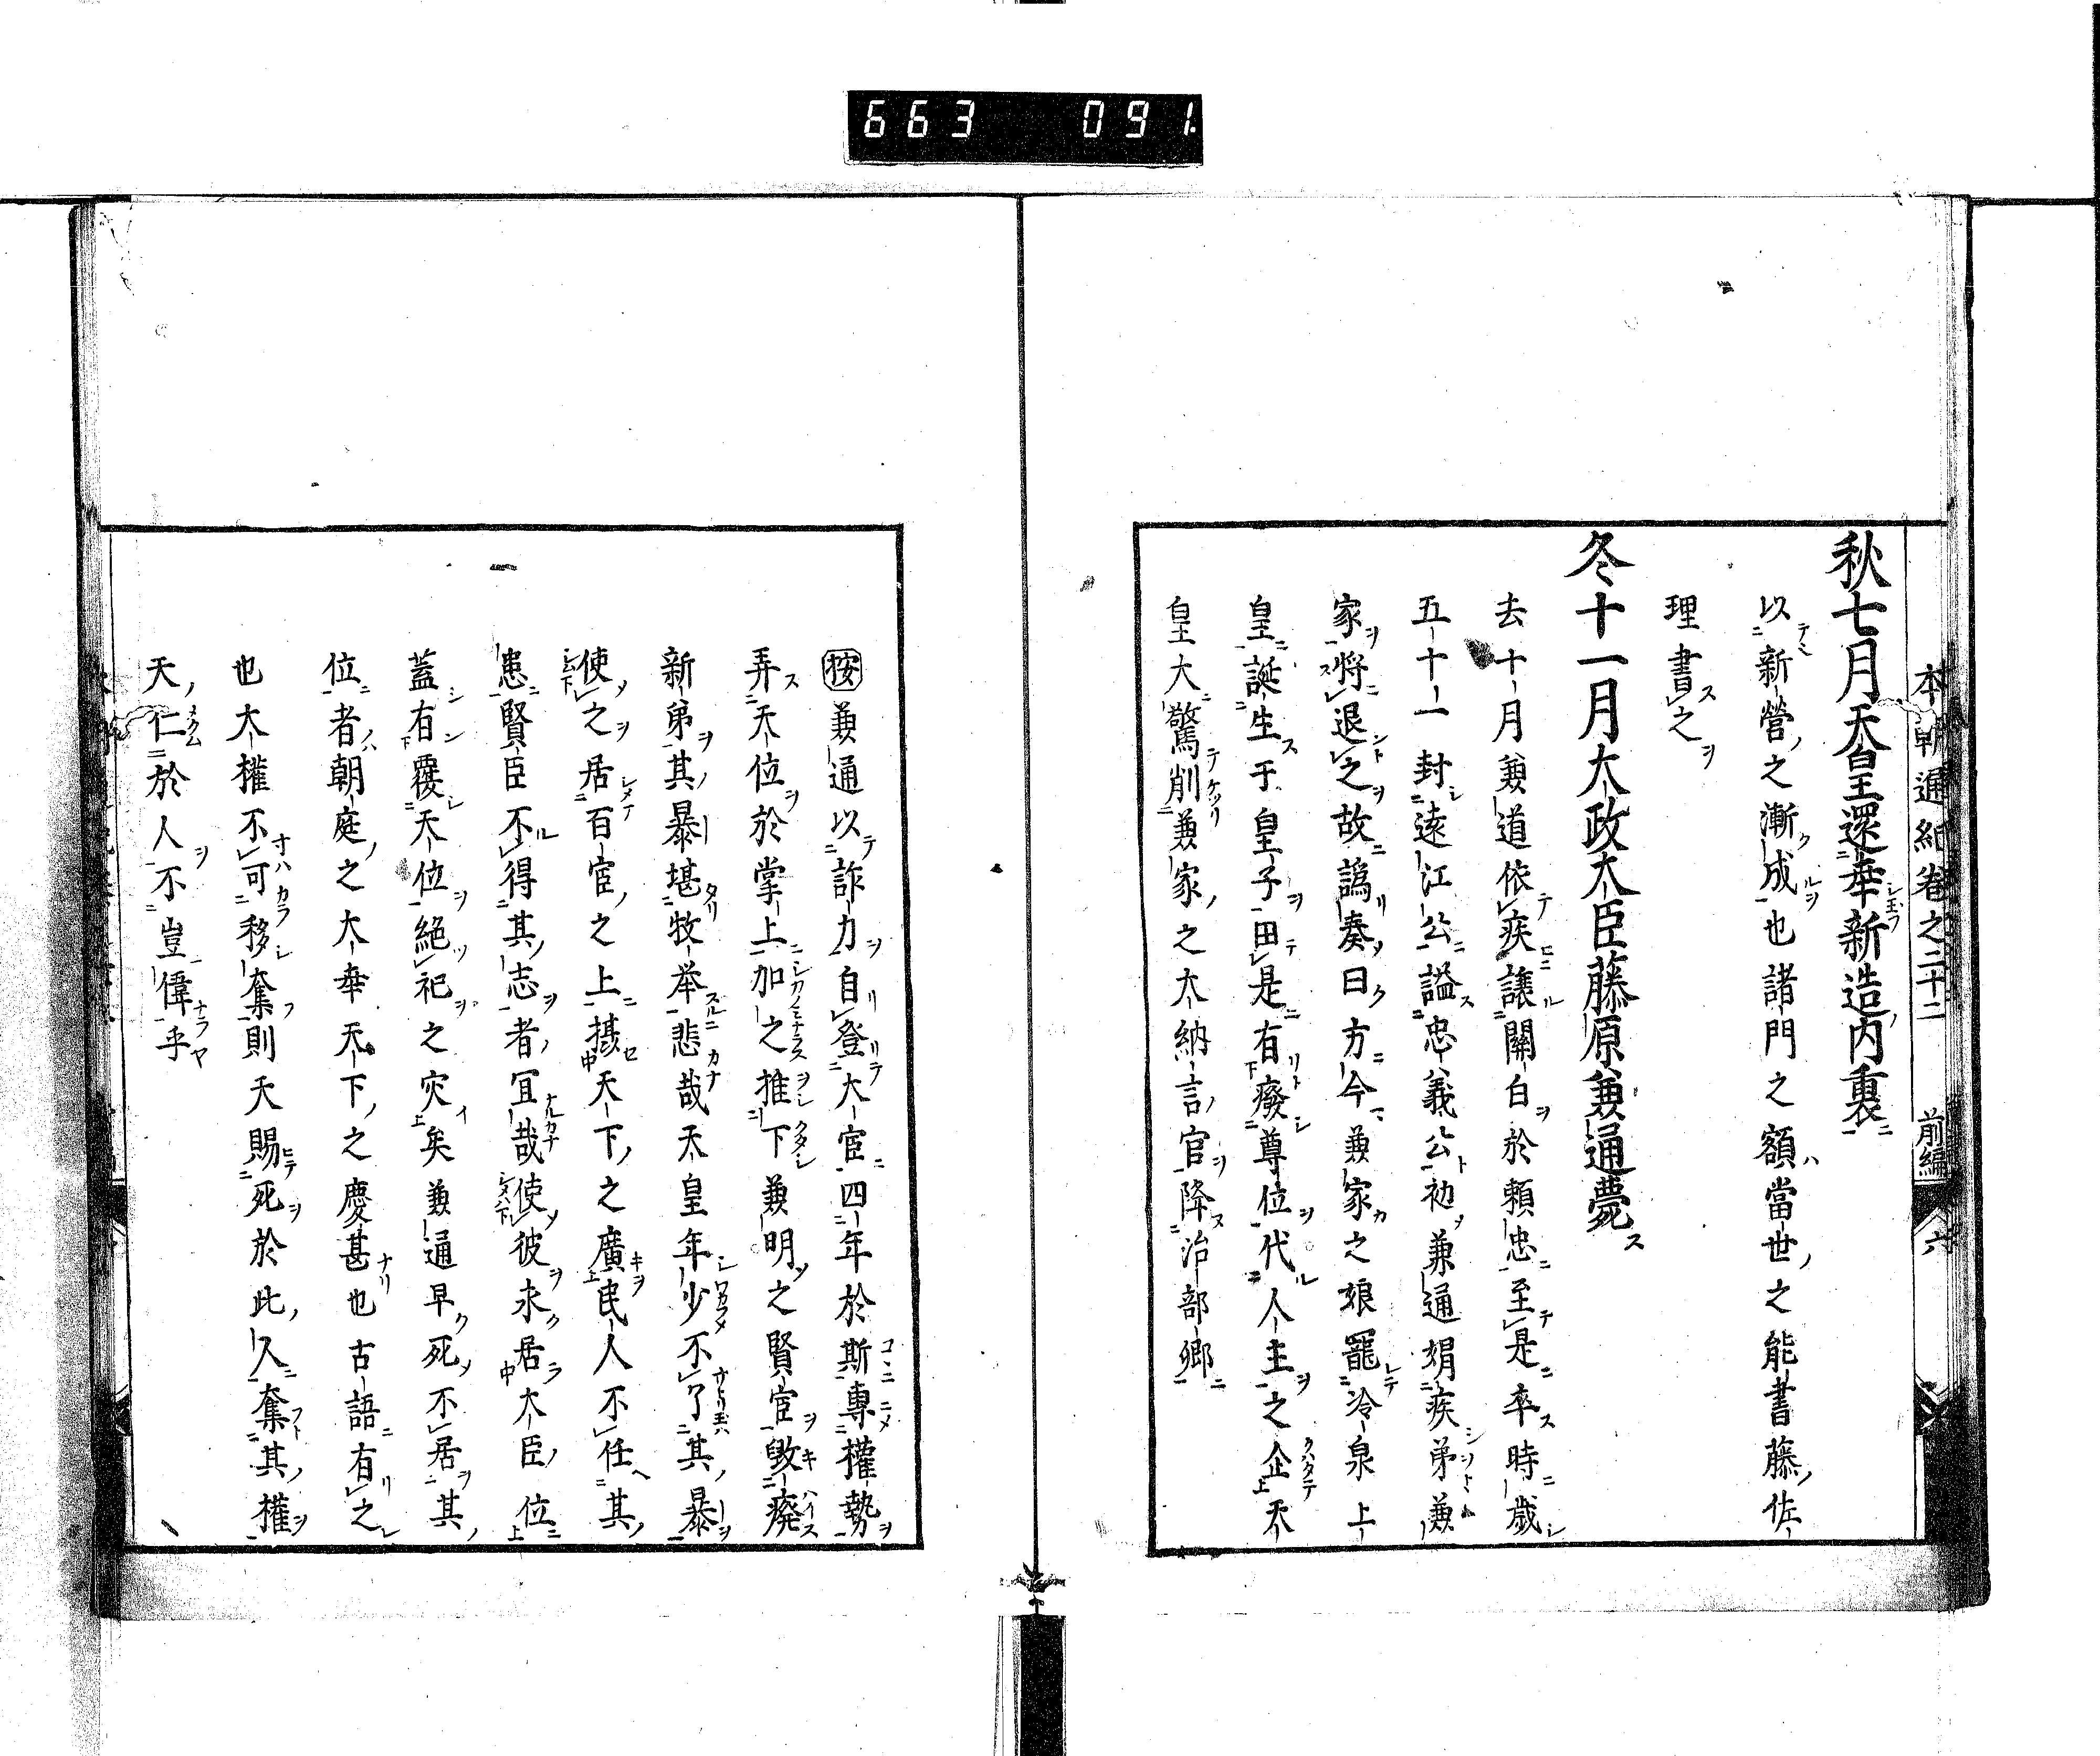 663 091.
本朝通紀卷之二十二 前編 六
秋七月天皇還幸新造内裏
以新營之漸成也諸門之額當世之能書藤佐
理書之
冬十一月太政大臣藤原兼通薨
去十月兼道依疾讓關白於頼忠至是卒時歳
五十一封遠江公謚忠義公初兼通娟疾弟兼
家將退之故譌奏曰方今兼家之娘罷冷泉上
皇誕生于皇子田是有廢尊位代人主之企天
皇大驚削兼家之大納言官降治部卿
按兼通以詐力自登大官四年於斯專權勢
弄天位於掌上加之推下兼明之賢官毀廢
新弟其暴堪牧举悲哉天皇年少不了其暴
使之居百官之上摄天下之廣民人不任其
患賢臣不得其志者冝哉使彼永居大臣位
蓋有覆天位絶祀之灾矣兼通早死不居其
位者朝庭之大幸天下之慶甚也古語有之
也大權不可移奪則天賜死於此人奪其權
天仁於人不豈偉乎